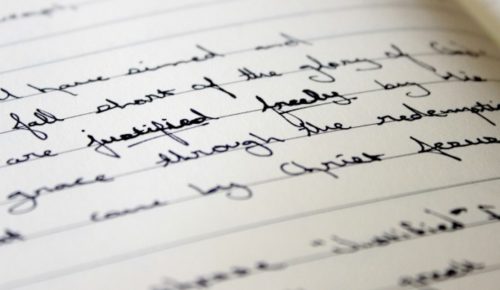 have sinned and
fall short of the glory of God
are justified freely by His
grace through the redemption
came by Christ Jesus
"Justified"